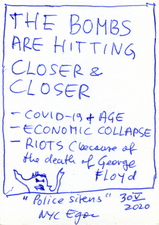 THE BOMBS
ARE HITTING
CLOSER &
CLOSER
- COVID-19 + AGE
- ECONOMIC COLLAPSE
- RIOTS (because of
the death of George
Floyd
"Police sirens" 30 V
NYC Egon 2020